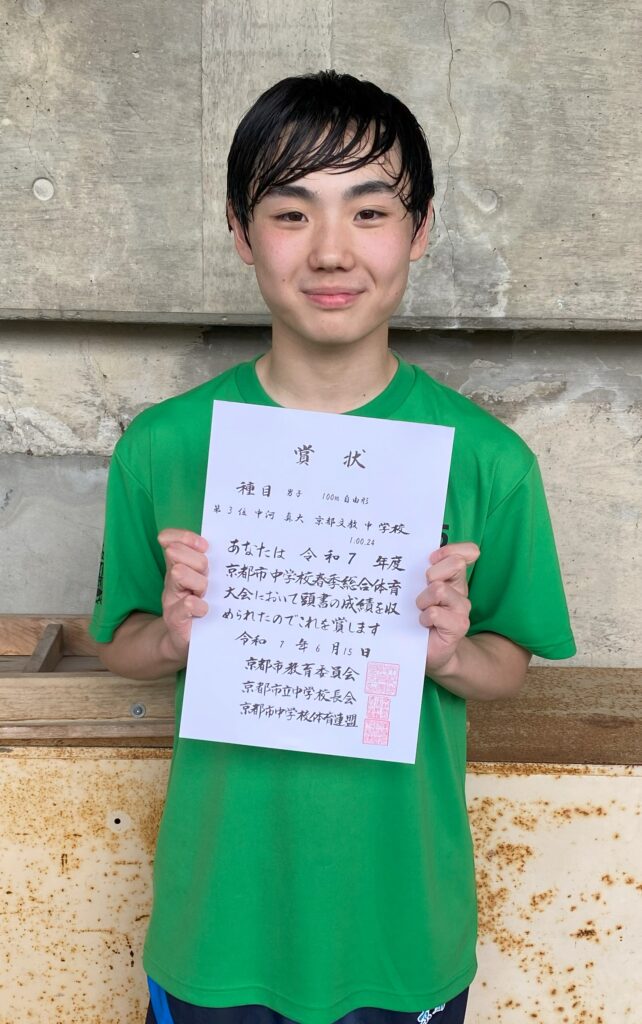 賞状
種目 男子 100m自由形
第3位 中河 真大 京都文教中学校
1.00.24
あなたは 令和7年度
京都市中学校春季総合体育
大会において頭書の成績を収
められたのでこれを賞します
令和 7 年 6 月 15 日
京都市教育委員会
京都市立中学校長会
京都市中学校体育連盟